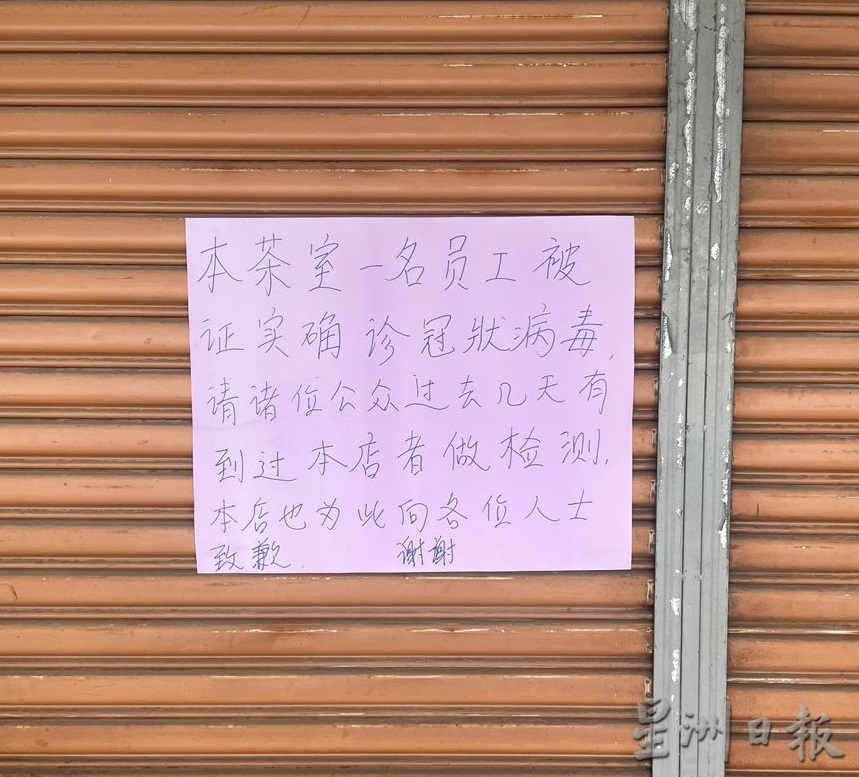 本茶室一名员工被
证实确诊冠狀病毒,
请诸位公众过去几天有
到过本店者做检测,
本店也为此向各位人士
致歉. 谢谢
星洲日报